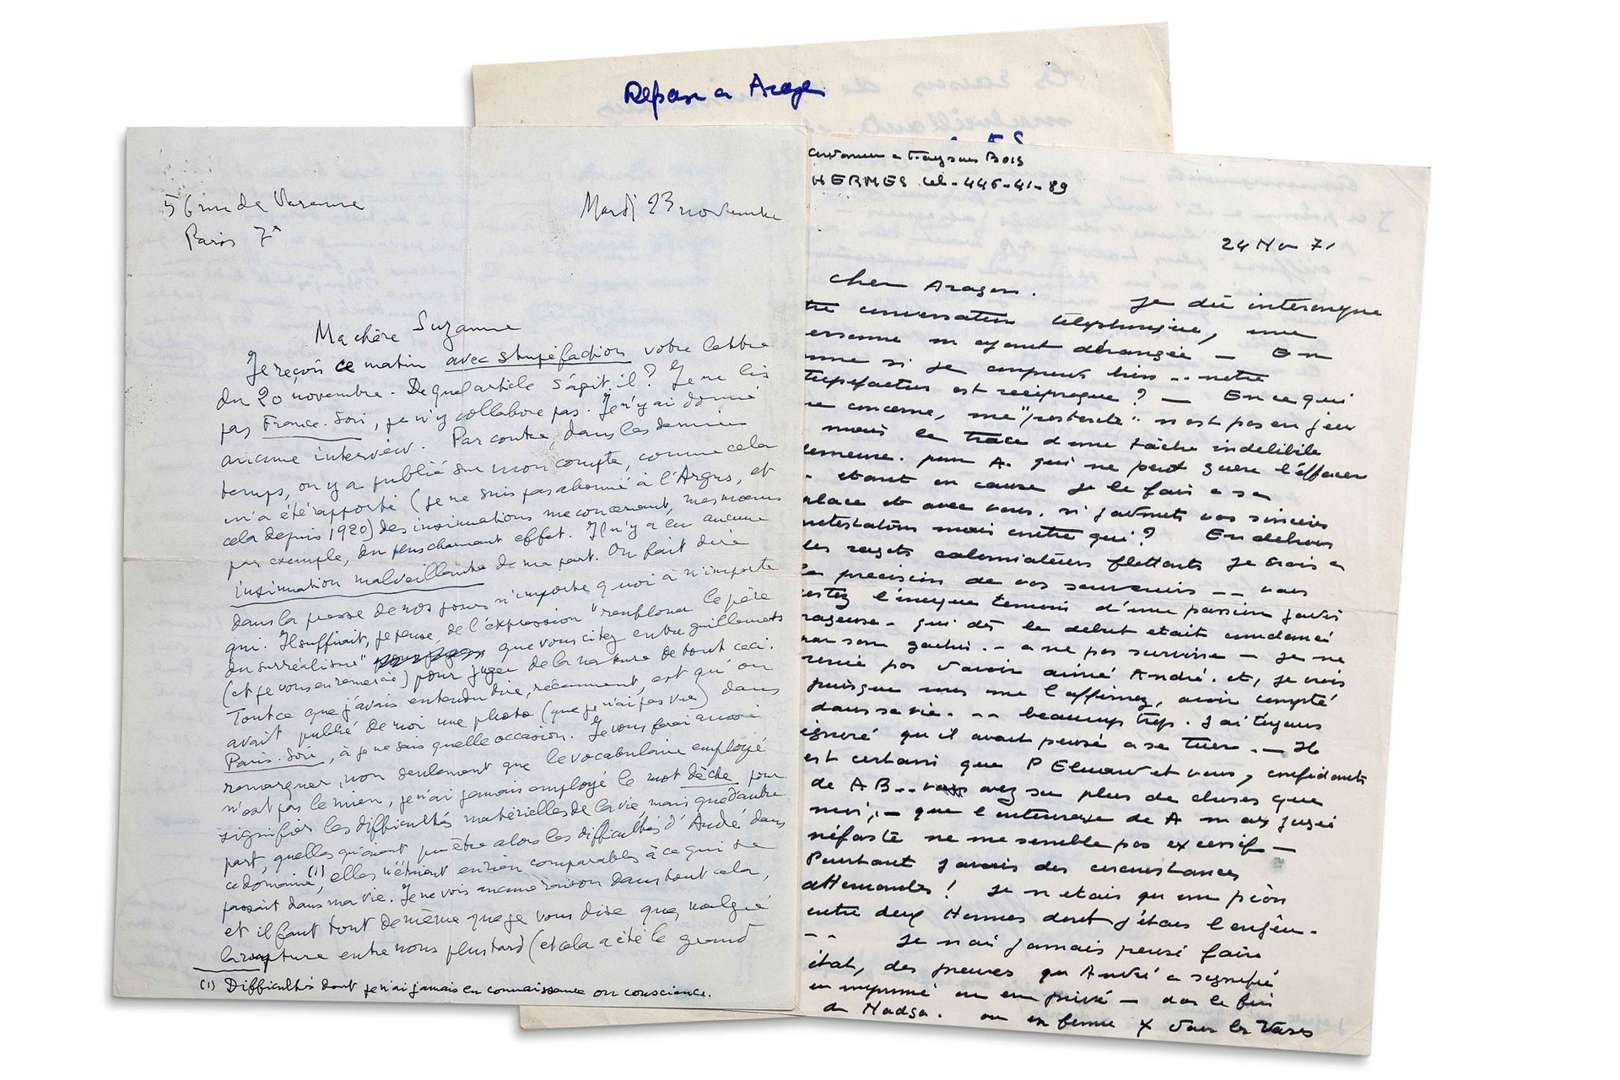 Réponse a Aragon
56 rue de Varenne
Paris 7e
Mardi 23 novembre
Ma chère Suzanne
Je reçois ce matin avec stupéfaction votre lettre
du 20 novembre. De quel article s'agit-il? Je ne lis
pas France-Soir, je n'y collabore pas. Je n'y ai donné
aucune interview. Par contre, dans les derniers
temps, on y a publié sur mon compte, comme cela
m'a été rapporté (je ne suis pas abonné à l'Argus, et
cela depuis 1920) des insinuations me concernant, mes mœurs
par exemple, du plus charmant effet. Il n'y a eu aucune
insinuation malveillante de ma part. On fait dire
dans la presse de nos jours n'importe quoi à n'importe
qui. Il suffirait, je pense, de l'expression "renflouer le père
du surréalisme" que vous citez entre guillemets
(et je vous en remercie) pour juger de la nature de tout ceci.
Tout ce que j'avais entendu dire, récemment, est qu'on
avait publié de moi une photo (que je n'ai pas vue) dans
Paris-Soir, à je ne sais quelle occasion. Je vous ferai aussi
remarquer, non seulement que le vocabulaire employé
n'est pas le mien, je n'ai jamais employé le mot dèche pour
signifier les difficultés matérielles de la vie, mais que d'autre
part, quelles qu'aient pu être alors les difficultés d'André dans
ce domaine (1), elles n'étaient en rien comparables à ce qui se
passait dans ma vie. Je ne vois aucune raison dans tout cela,
et il faut tout de même que je vous dise que, malgré
la rupture entre nous plus tard (et cela a été le grand
(1) Difficultés dont je n'ai jamais eu connaissance ou conscience.
a Fay aux Bois
HERMES tel - 446-41-89
24 Nov 71
Cher Aragon. Je dû interrompre
tre conversation téléphonique, une
ersonne m'ayant dérangée — En
me si je comprends bien .. notre
tupefaction est réciproque? — En ce qui
e concerne, ma "postérité" n'est pas en jeu
mais la trace d'une tâche indélébile
demeure. pour A. qui ne peut guère l'effacer
- étant en cause je le fais a sa
place et avec vous, si j'admets vos sincères
ntestations mais contre qui? En dehors
des ragots calomniateurs flottants je crois a
la précision de vos souvenirs — vous
estez l'unique temoin d'une passion
rageuse - qui dès le debut etait condamnée
par son — a ne pas survivre — Je ne
renie pas d'avoir aimé André. et, je crois
puisque vous me l'affirmez, avoir compté
dans sa vie. -- beaucoup trop. J'ai toujours
ignoré qu'il avait pensé a se tuer. — Il
est certain que P Eluard et vous, confidents
de AB.. vous avez su plus de choses que
moi, - que l'entourage de A m'ait jugée
néfaste ne me semble pas excessif —
Pourtant j'avais des circonstances
attenuantes! Je n'etais qu'un pion
entre deux Hommes dont j'étais l'enjeu -
-- Je n'ai jamais pensé faire
état, des preuves qu'André a signifié
en imprimé ou en privé — dans la fin
de Nadja. ou en femme X dans les Vases